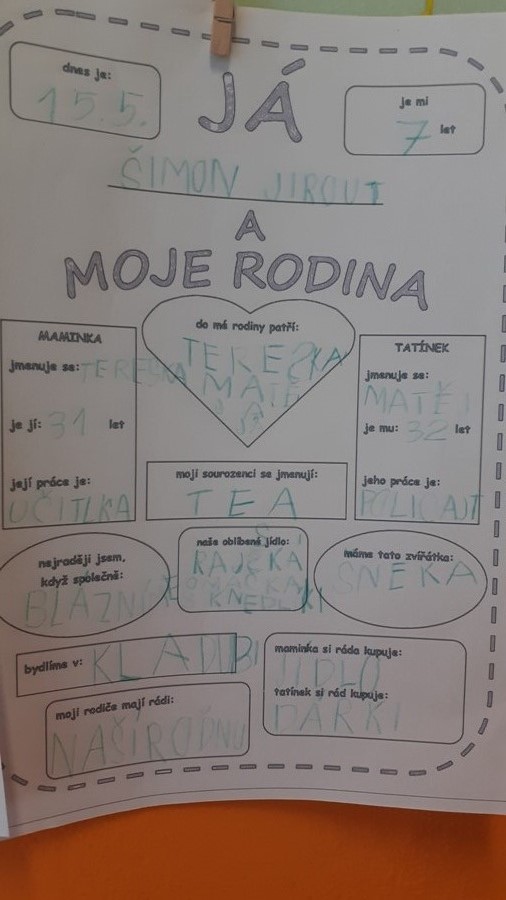 dnes je:
15.5.
JÁ
je mi
7 let
ŠIMON JIROUT
A
MOJE RODINA
MAMINKA
jmenuje se: TEREŠKA
je jí: 31 let
její práce je:
UČITLKA
do mé rodiny patří:
TEREŠKA
MATĚ
JÁ
TATÍNEK
jmenuje se:
MATĚJ
je mu: 32 let
jeho práce je:
POLICAJT
moji sourozenci se jmenují:
TEA
nejraději jsem,
když společně:
BLÁZNI
naše oblíbené jídlo:
RAJČKA
OMÁČKA
KNEDLÍKI
máme tato zvířátka:
ŠNEKA
bydlíme v: KLADIBI
maminka si ráda kupuje:
JÍDLO
tatínek si rád kupuje:
DÁRKI
moji rodiče mají rádi: